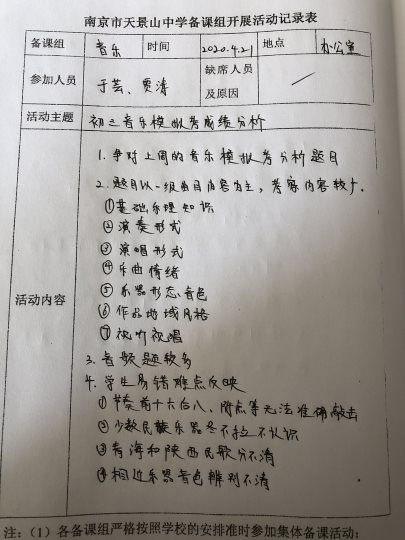 南京市天景山中学备课组开展活动记录表
备课组 音乐 时间 2020.4.21 地点 办公室
参加人员 于芸、贾涛 缺席人员及原因
活动主题 初三音乐模拟考成绩分析
活动内容
1. 争对上周的音乐模拟考分析题目
2. 题目以一级曲目内容为主，考察内容较广.
①基础乐理知识
②演奏形式
③演唱形式
④乐曲情绪
⑤乐器形态音色
⑥作品地域风格
⑦视听视唱
3. 音频题较多
4. 学生易错难点反映
①节奏前十六后八、附点等无法准确敲击
②少数民族乐器冬不拉不认识
③青海和陕西民歌分不清
④相近乐器音色辨别不清
注：（1）各备课组严格按照学校的安排准时参加集体备课活动；